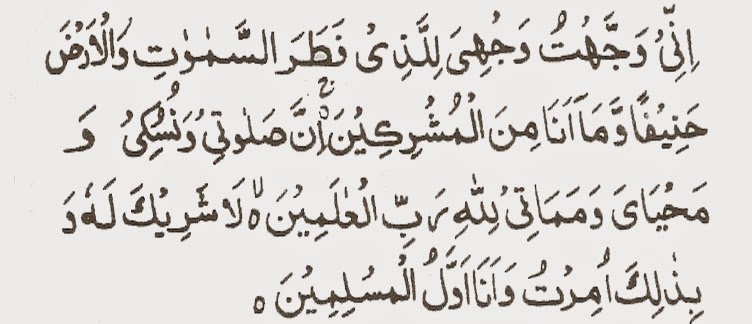 اِنِّىْ وَجَّهْتُ وَجْهِىَ لِلَّذِىْ فَطَرَ السَّمٰوٰتِ وَالْاَرْضَ
حَنِيْفًا وَّمَآ اَنَا مِنَ الْمُشْرِكِيْنَ ۚ اِنَّ صَلٰوتِىْ وَنُسُكِىْ وَ
مَحْيَاىَ وَمَمَاتِىْ لِلّٰهِ رَبِّ الْعٰلَمِيْنَ ۝ لَا شَرِيْكَ لَهٗ وَ
بِذٰلِكَ اُمِرْتُ وَاَنَا اَوَّلُ الْمُسْلِمِيْنَ ۝